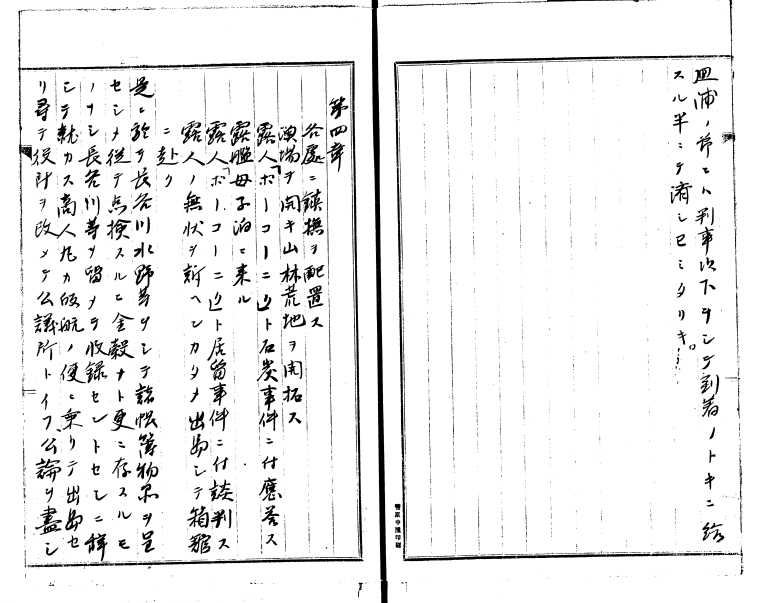 皿浦ノ爺ヒハ判事以下ヲシテ到着ノトキニ
スル半ニテ済シ已ミタリキ
第四章
各處ニ鎮撫ヲ配置ス
漁場ヲ開キ山林荒地ヲ開拓ス
露人「ボーコーニ」ト石炭事件ニ付應答ス
露艦母子泊ニ来ル
露人「ボーコーニ」ト居留事件ニ付談判ス
露人ノ無状ヲ訴ヘンカタメ出島シテ箱館
ニ赴ク
是ニ於テ長谷川水野等ヲシテ諸帳簿物品ヲ呈
セシメ従テ点検スルニ金穀ナト更ニ存スルモ
ノナシ長谷川等ヲ留メテ收録セントセシニ辞
シテ就カス商人カ皈航ノ便ニ乗リテ出島セ
リ尋テ役所ヲ改メテ公議所トイフ公論ヲ盡シ